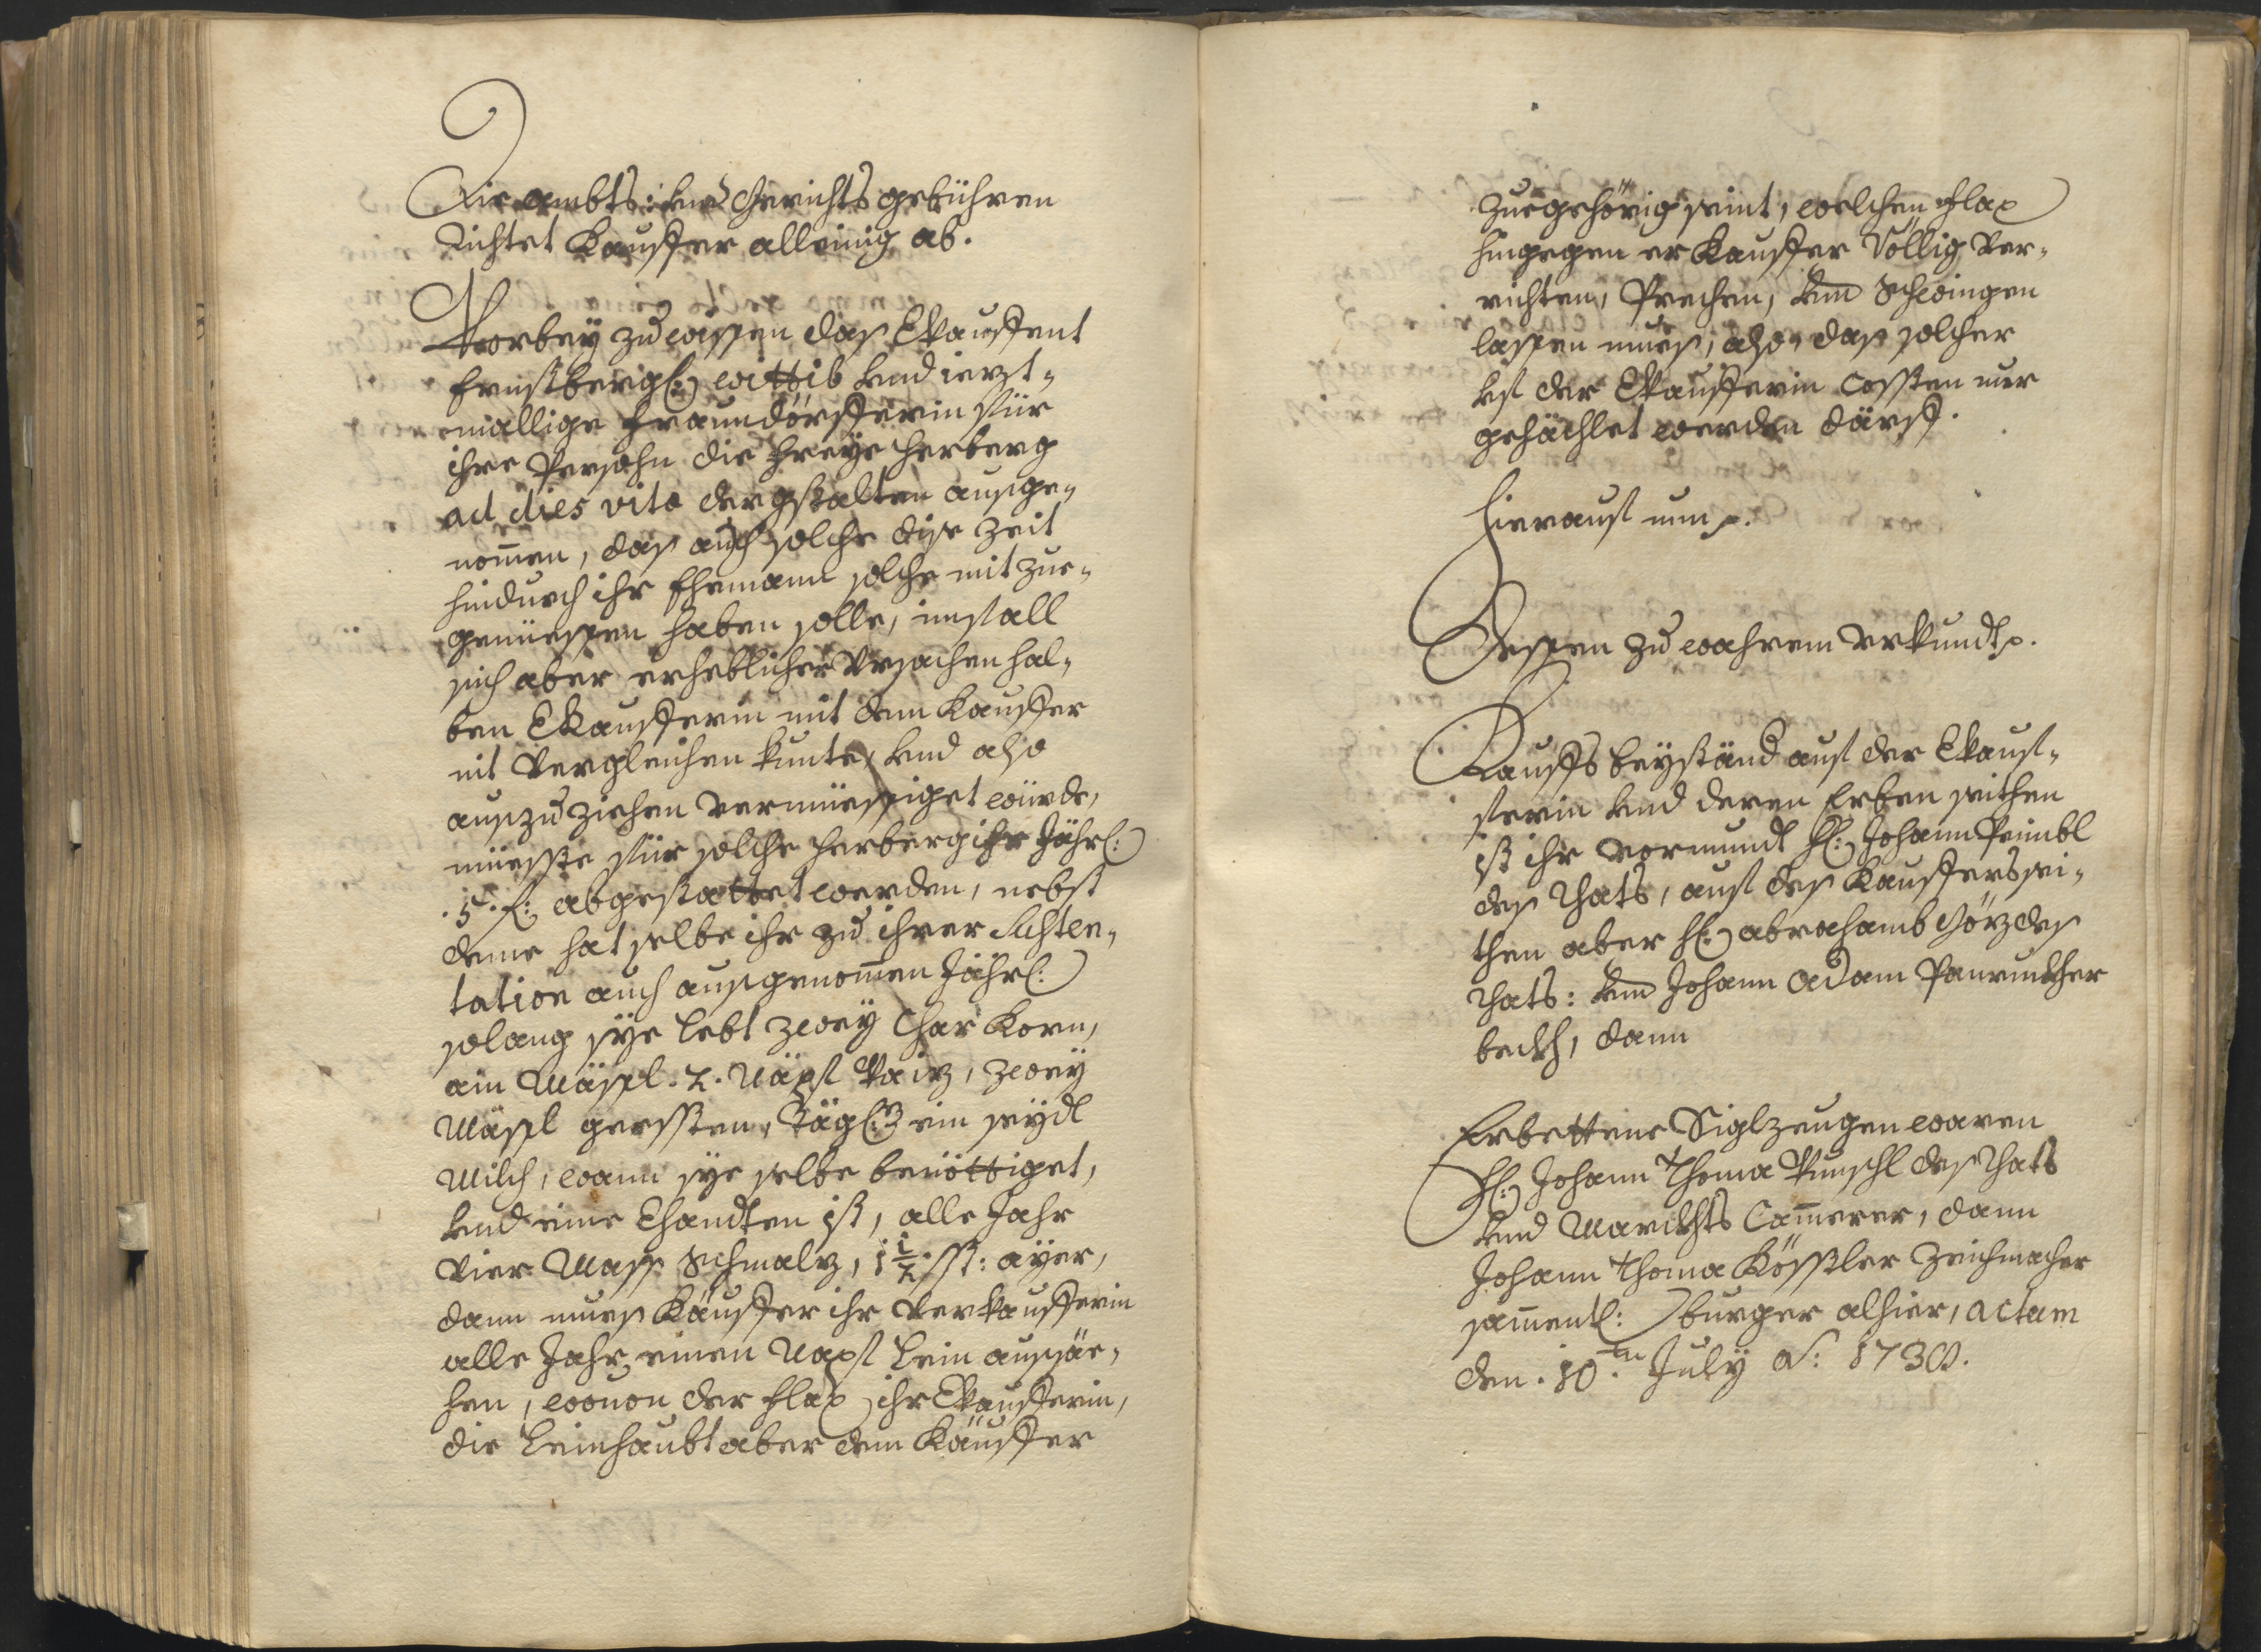 Die ambts: und Gerichts gebühren
Richtet Kauffer alleinig ab.
Vorbey zu wissen das Vkauffent
Ernstbergl: wittib und ierzt-
mallige Fraundörfferin für
ihre Persohn die freye herberg
ad dies vitæ dergstalten ausge-
nomen, das auch solche dise Zeit
hindurch ihr Ehemann solche mit zue-
genüessen haben solle, imfall
sich aber erheblicher Vrsachen hal-
ben Vkaufferin mit dem Kauffer
nit Vergleichen kunte, und also
auszuziehen vermüessiget würde,
müesste für solche herberg ihr Jährl:
.5. f: abgestattet werden, nebst
deme hat selbe ihr zu ihrer Susten-
tation auch ausgenomen Jährl:
solang sye lebt zwey Char Korn,
ain Mässl .2. Näpf Vaiz, zwey
Mässl gerssten, Tägl: ein seydl
Milch, wann sye selbe benöttiget,
und eine Vhandten ist, alle Jahr
vier Mass Schmalz, 1 1/2 ß: ayer,
dann mues Käuffer ihr Verkaufferin
alle Jahr einen Napf Lein aussäe-
hen, wouon der flax ihr Vkaufferin,
die Leinhaubt aber dem Käuffer
zuegehörig seint, welchen flax
hingegen er Kauffer Völlig ver-
richten, Prechen, und Schwingen
lassen mues, also, das solcher
uf der Vkaufferin Cossten nur
gehächlet werden därff.
Hierauf nun p.
Dessen zu wahrem Vrkundt p.
Kauffs beyständ auf der Vkauf-
ferin und deren Erben seithen
ist ihr vormundt H: Johann Preimbl
des Rhats, auf des Kauffers sei-
then aber H: abrahamb Görz des
Rhats: und Johann Adam
beckh, dann
Erbettene Siglzeugen waren
H: Johann Thoma Punschl des Rhats
und Marckhts Camerer, dann
Johann Thoma Kössler Zeichmacher
samentl: burger alhier, actum
den .10.ten July Ao: 1730.